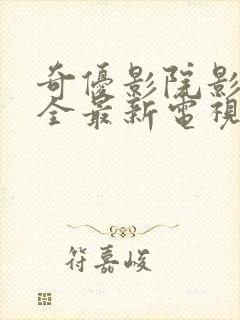 奇優影院影
全最新電視
符嘉峻